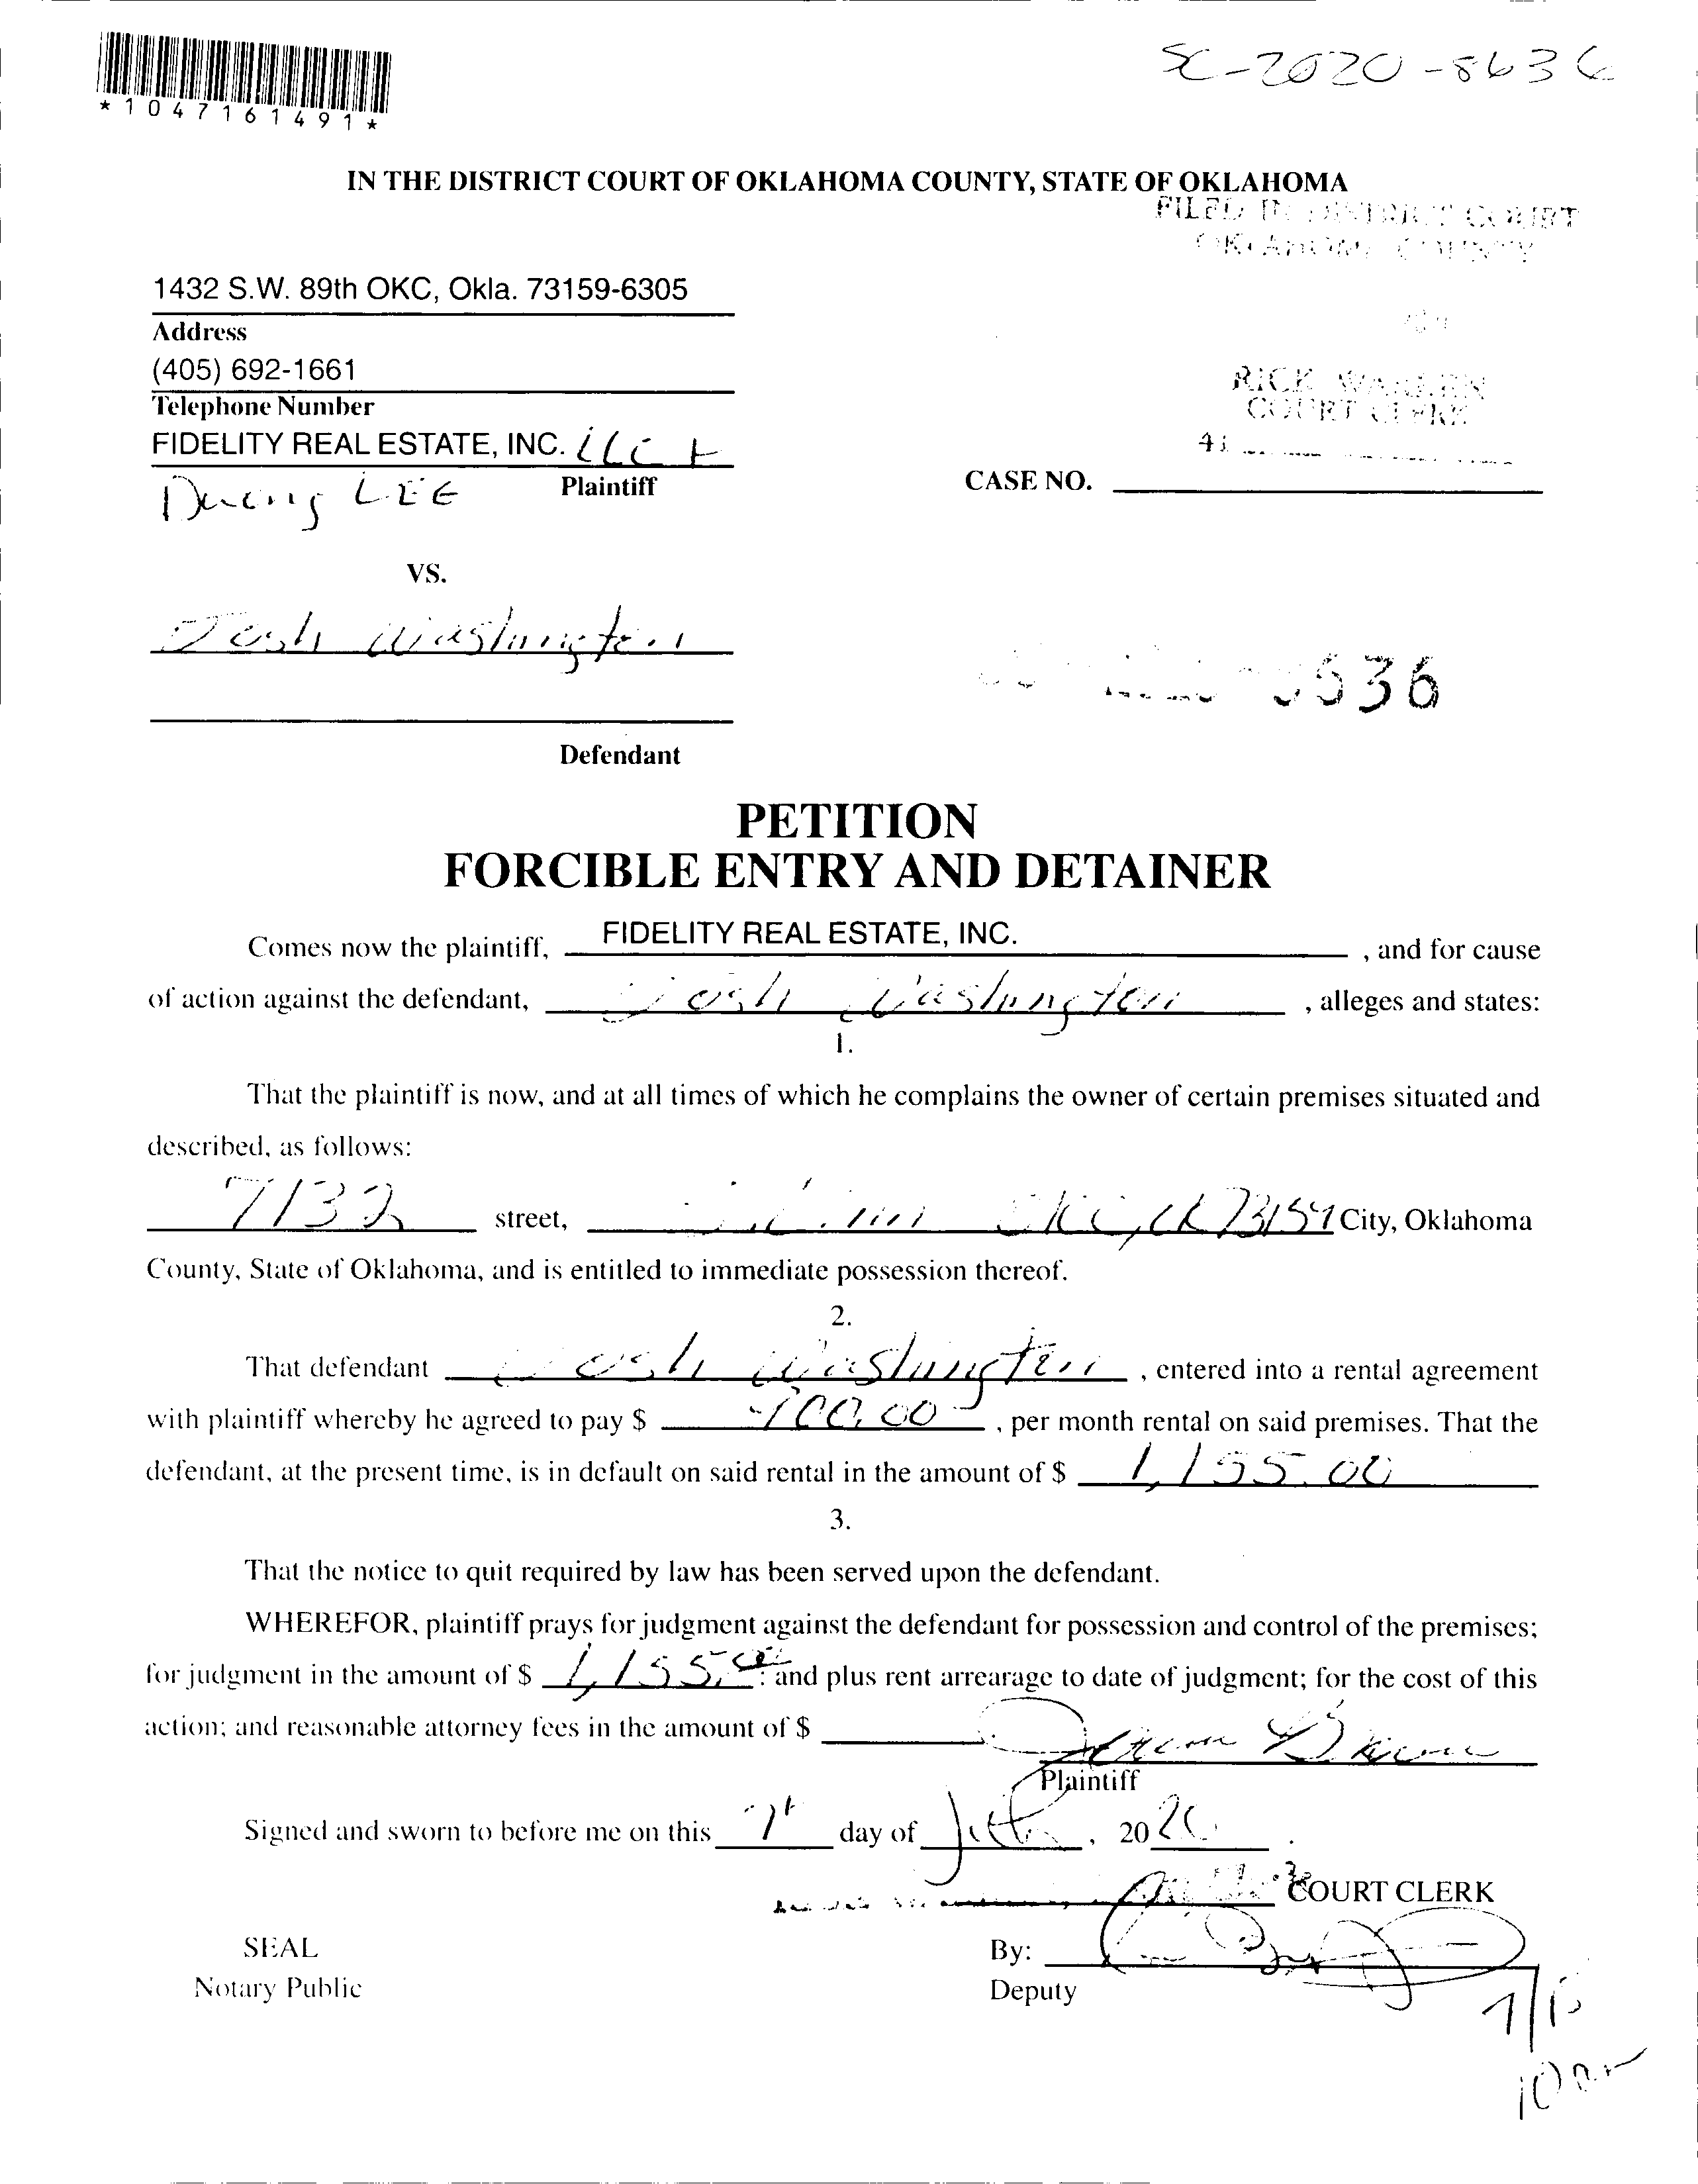 *1047161491*
SC-2020-8636
IN THE DISTRICT COURT OF OKLAHOMA COUNTY, STATE OF OKLAHOMA
FILED IN DISTRICT COURT
OKLAHOMA COUNTY
1432 S.W. 89th OKC, Okla. 73159-6305
Address
(405) 692-1661
Telephone Number
RICK WARREN
COURT CLERK
FIDELITY REAL ESTATE, INC.
41
LEE Plaintiff
CASE NO.
VS.
Josh Washington
636
Defendant
PETITION
FORCIBLE ENTRY AND DETAINER
Comes now the plaintiff, FIDELITY REAL ESTATE, INC. , and for cause
of action against the defendant, Josh Washington , alleges and states:
1.
That the plaintiff is now, and at all times of which he complains the owner of certain premises situated and
described, as follows:
7132 street, City, Oklahoma
County, State of Oklahoma, and is entitled to immediate possession thereof.
2.
That defendant Josh Washington , entered into a rental agreement
with plaintiff whereby he agreed to pay $ , per month rental on said premises. That the
defendant, at the present time, is in default on said rental in the amount of $ 1,155.00
3.
That the notice to quit required by law has been served upon the defendant.
WHEREFOR, plaintiff prays for judgment against the defendant for possession and control of the premises;
for judgment in the amount of $ 1,155.00 : and plus rent arrearage to date of judgment; for the cost of this
action; and reasonable attorney fees in the amount of $
Plaintiff
Signed and sworn to before me on this day of , 2020
COURT CLERK
SEAL
By:
Notary Public
Deputy